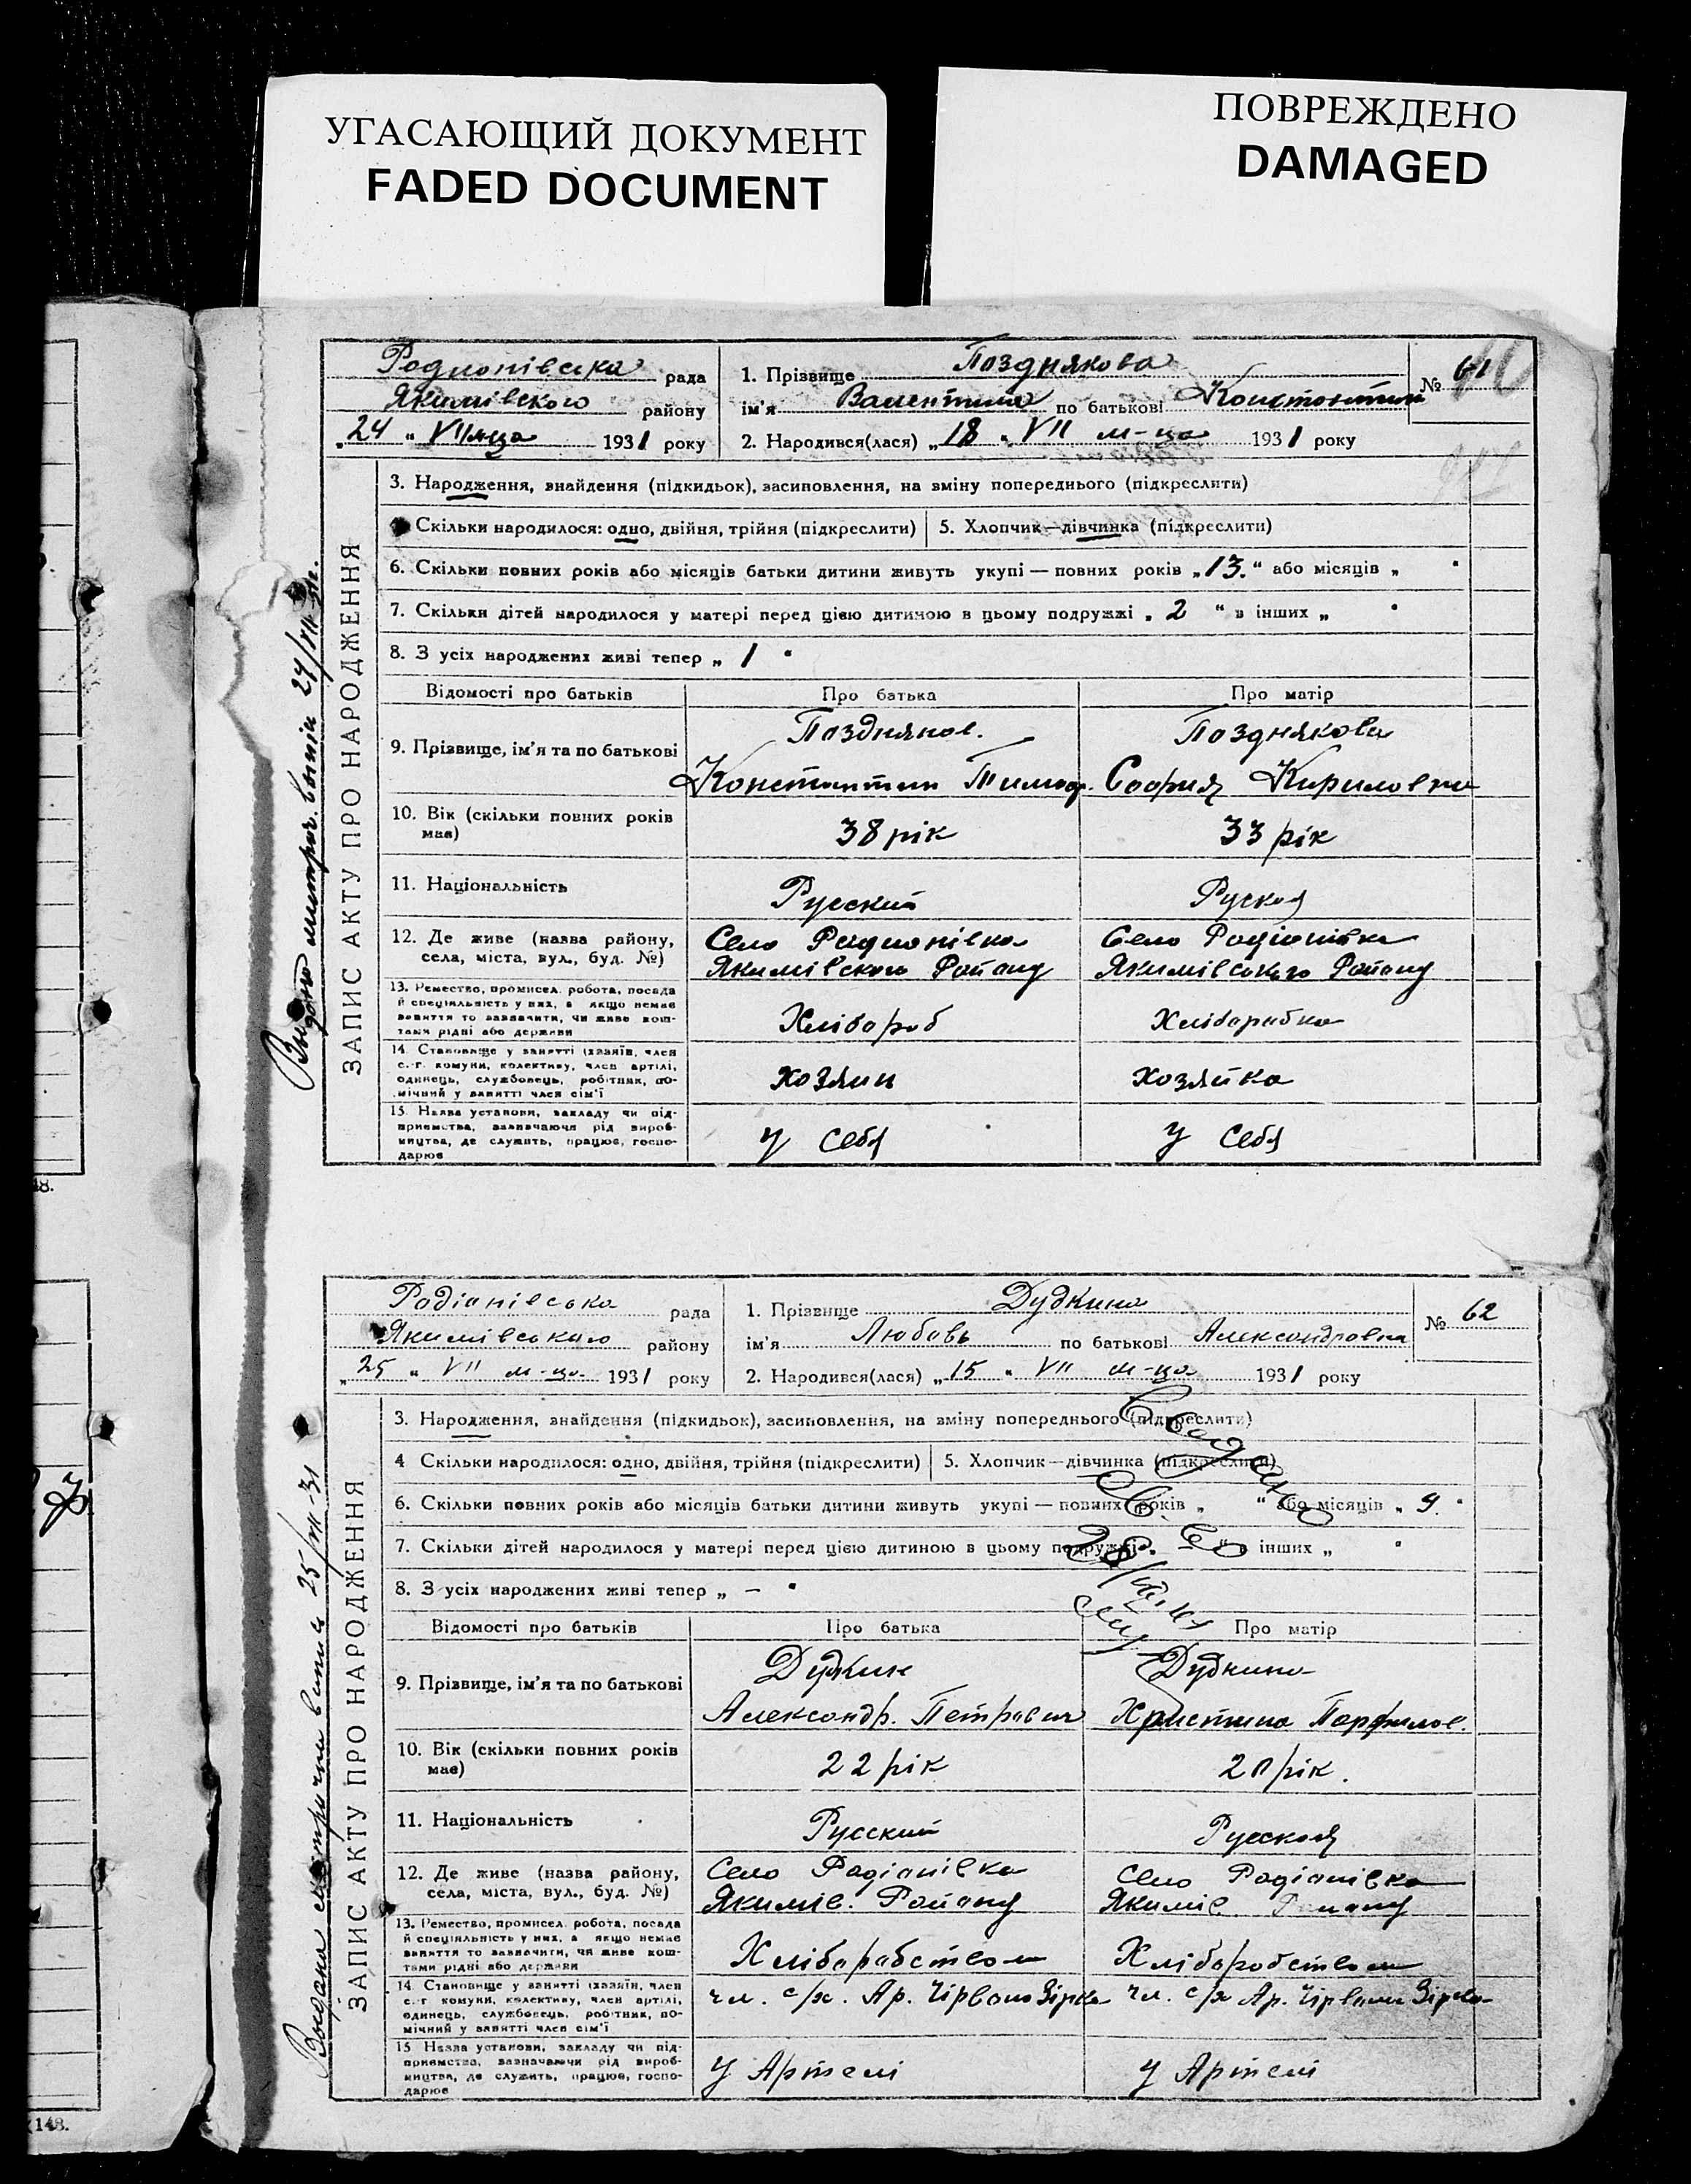 УГАСАЮЩИЙ ДОКУМЕНТ
FADED DOCUMENT
ПОВРЕЖДЕНО
DAMAGED
Родионівська рада
Якимівского району
„24 “ VII м-ца 1931 року
1. Прізвище Позднякова
ім'я Валентина по батькові Константин
2. Народився(лася) „18 “ VII м-ца 1931 року
№ 61
ЗАПИС АКТУ ПРО НАРОДЖЕННЯ
3. Народження, знайдення (підкидьок), засиновлення, на зміну попереднього (підкреслити)
Скільки народилося: одно, двійня, трійня (підкреслити)
5. Хлопчик—дівчинка (підкреслити)
6. Скільки повних років або місяців батьки дитини живуть укупі — повних років „13.“ або місяців „ “
7. Скільки дітей народилося у матері перед цією дитиною в цьому подружжі „ 2 “ в інших „ “
8. З усіх народжених живі тепер „ 1 “
Відомості про батьків Про батька Про матір
9. Прізвище, ім'я та по батькові
Поздняков.
Константин Тимоф.
Позднякова
София Кириловна
10. Вік (скільки повних років має)
38 рік
33 рік
11. Національність
Русский
Руская
12. Де живе (назва району, села, міста, вул., буд. №)
Село Родионівка
Якимівского Району
Село Родіонівка
Якимівського Району
13. Ремество, промисел, робота, посада
й спеціяльність у них, а якщо немає
заняття то зазначити, чи живе кош-
тами рідні або держави
Хлібороб
Хліборобка
14. Становище у занятті (хазяїн, член
с.-г. комуни, колективу, член артілі,
одинець, службовець, робітник, по-
мічний у занятті член сім'ї
Хозяин
Хозяйка
15. Назва установи, закладу чи під-
приємства, зазначаючи рід вироб-
ництва, де служить, працює, госпо-
дарює
У себя
У себя
48.
Родіонівська рада
Якимівського району
„25 “ VII м-ца 1931 року
1. Прізвище Дудкина
ім'я Любовь по батькові Александровна
2. Народився(лася) „15 “ VII м-ца 1931 року
№ 62
ЗАПИС АКТУ ПРО НАРОДЖЕННЯ
3. Народження, знайдення (підкидьок), засиновлення, на зміну попереднього (підкреслити)
4 Скільки народилося: одно, двійня, трійня (підкреслити)
5. Хлопчик—дівчинка (підкреслити)
6. Скільки повних років або місяців батьки дитини живуть укупі — повних років „ “ або місяців „ 9. “
7. Скільки дітей народилося у матері перед цією дитиною в цьому подружжі „ – “ в інших „ “
8. З усіх народжених живі тепер „ – “
Відомості про батьків Про батька Про матір
9. Прізвище, ім'я та по батькові
Дудкин
Александр. Петрович
Дудкина
Христина Парфилов.
10. Вік (скільки повних років має)
22 рік
20 рік.
11. Національність
Русский
Русская
12. Де живе (назва району, села, міста, вул., буд. №)
Село Родіонівка
Якимів. Району
Село Родіонівка
Якимів.
13. Ремество, промисел, робота, посада
й спеціяльність у них, а якщо немає
заняття то зазначити, чи живе кош-
тами рідні або держави
Хліборобством
Хліборобством
14. Становище у занятті (хазяїн, член
с.-г. комуни, колективу, член артілі,
одинець, службовець, робітник, по-
мічний у занятті член сім'ї
чл. с/х. Ар. Чірвона Зірка
чл. с/х Ар. Чірвона Зірка
15 Назва установи, закладу чи під-
приємства, зазначаючи рід вироб-
ництва, де служить, працює, госпо-
дарює
У Артелі
У Артелі
148.